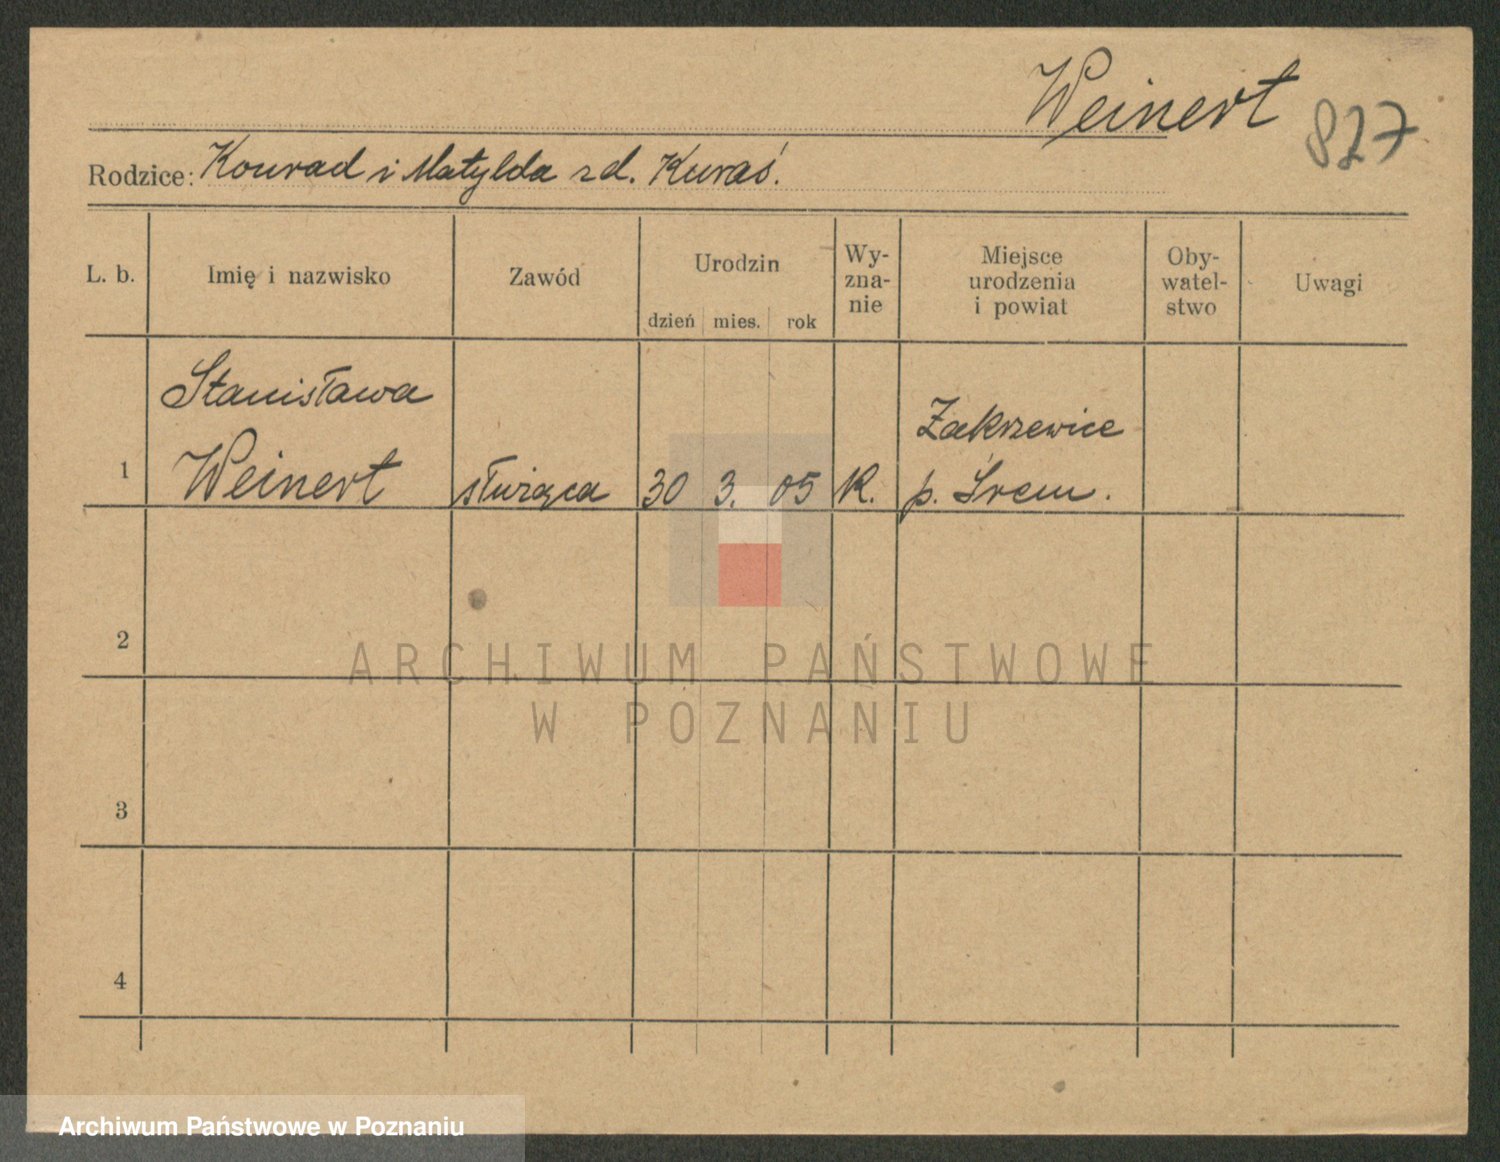 Weinert
827
Rodzice: Konrad i Matylda zd. Kuraś.
L. b.
Imię i nazwisko
Zawód
Urodzin
dzień mies. rok
Wy-
zna-
nie
Miejsce
urodzenia
i powiat
Oby-
watel-
stwo
Uwagi
1
Stanisława
Weinert
służąca
30 3. 05
K.
Zakrzewice
p. Śrem.
2
3
4
ARCHIWUM PAŃSTWOWE
W POZNANIU
Archiwum Państwowe w Poznaniu